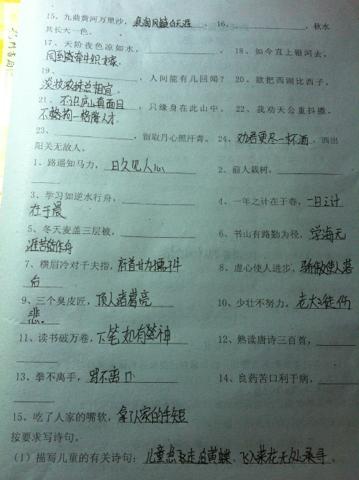 15、九曲黄河万里沙，浪淘风簸自天涯。16、__________，秋水
共长天一色。
17、天阶夜色凉如水，__________ 18、如今直上银河去，
同到牵牛织女家
19、__________，人间能有几回闻？ 20、欲把西湖比西子，
淡妆浓抹总相宜
21、不识庐山真面目，只缘身在此山中。 22、我劝天公重抖擞，
不拘一格降人才
23、__________，留取丹心照汗青。 24、劝君更尽一杯酒，西出
阳关无故人。
1、路遥知马力，日久见人心 2、前人栽树，__________
3、学习如逆水行舟，__________ 4、一年之计在于春，一日之计
在于晨
5、冬天麦盖三层被，__________ 6、书山有路勤为径，学海无
涯苦作舟
7、横眉冷对千夫指，俯首甘为孺子牛 8、虚心使人进步，骄傲使人落
后
9、三个臭皮匠，顶个诸葛亮 10、少壮不努力，老大徒伤
悲。
11、读书破万卷，下笔如有神 12、熟读唐诗三百首，
13、拳不离手，曲不离口 14、良药苦口利于病，
15、吃了人家的嘴软，拿了人家的手短
按要求写诗句。
（1）描写儿童的有关诗句：儿童急走追黄蝶，飞入菜花无处寻